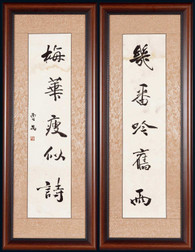 幾番吟舊雨
梅華瘦似詩